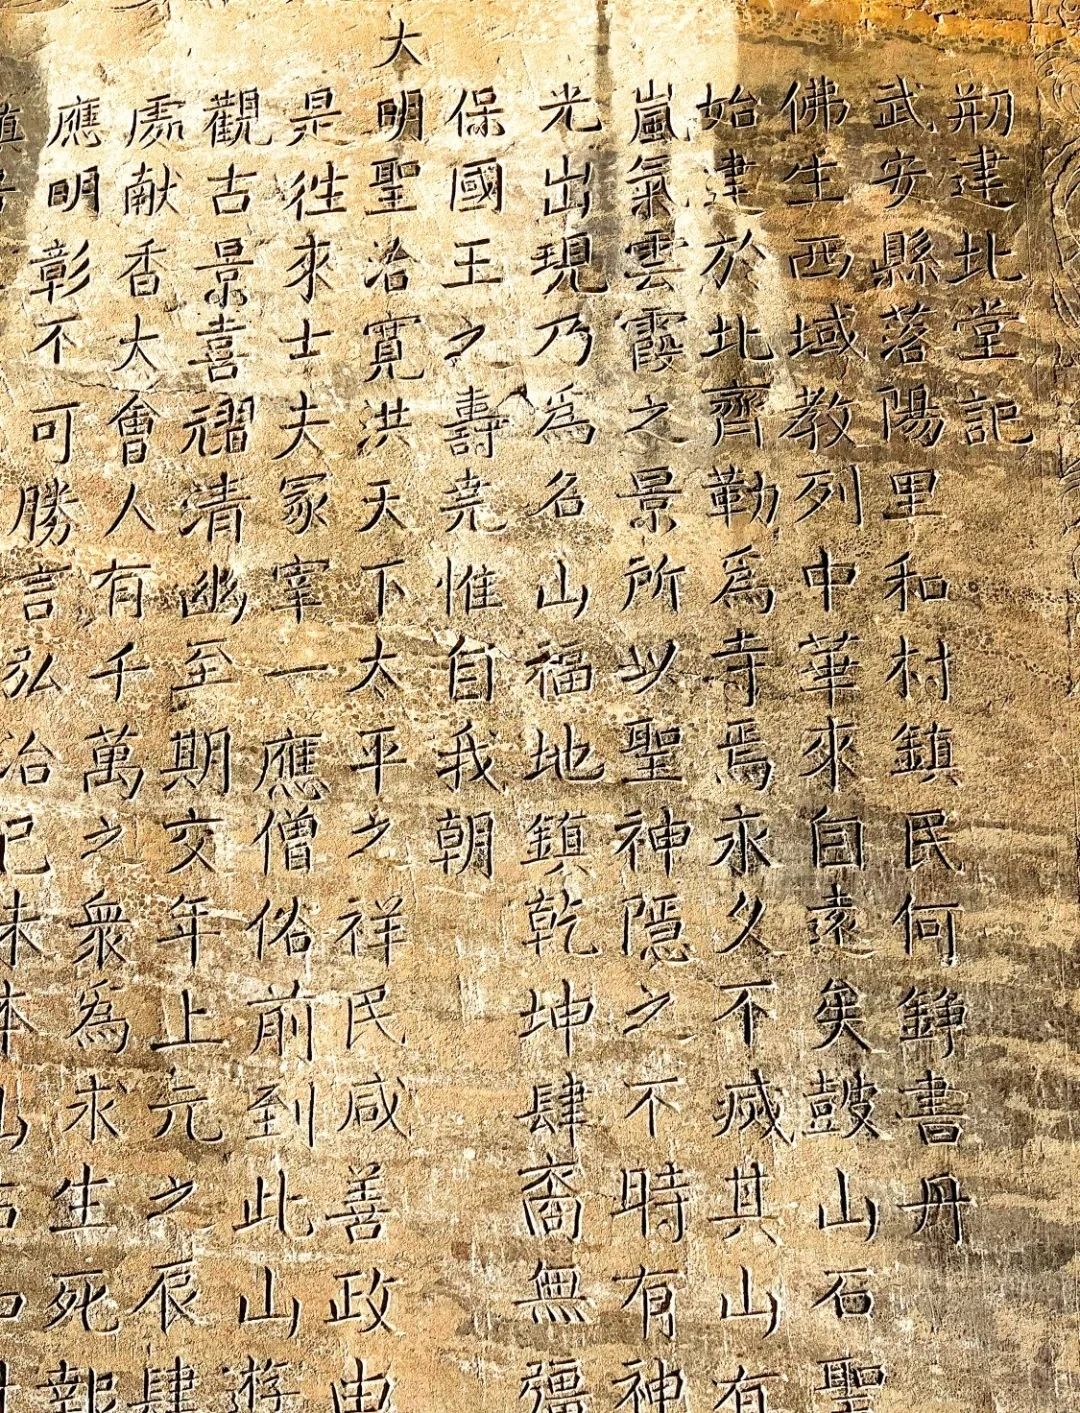 剏建北堂記
武安縣落陽里和村鎮民何錚書丹
佛生西域教列中華來自遠矣鼓山石聖
始建於北齊勒爲寺焉永久不痰其山有
嵐氣雲霞之景所以聖神隱之不時有神
光出現乃為名山福地鎮乾坤肆裔無彊
保國王之壽堯惟自我朝
大明聖治寛洪天下太平之祥民咸善政由
是徃來士夫冢宰一應僧俗前到此山游
觀古景喜褶清幽至期文年上元之辰肆
處献香大會人有千萬之衆為求生死報
應明彰不可勝言弘治己未本山